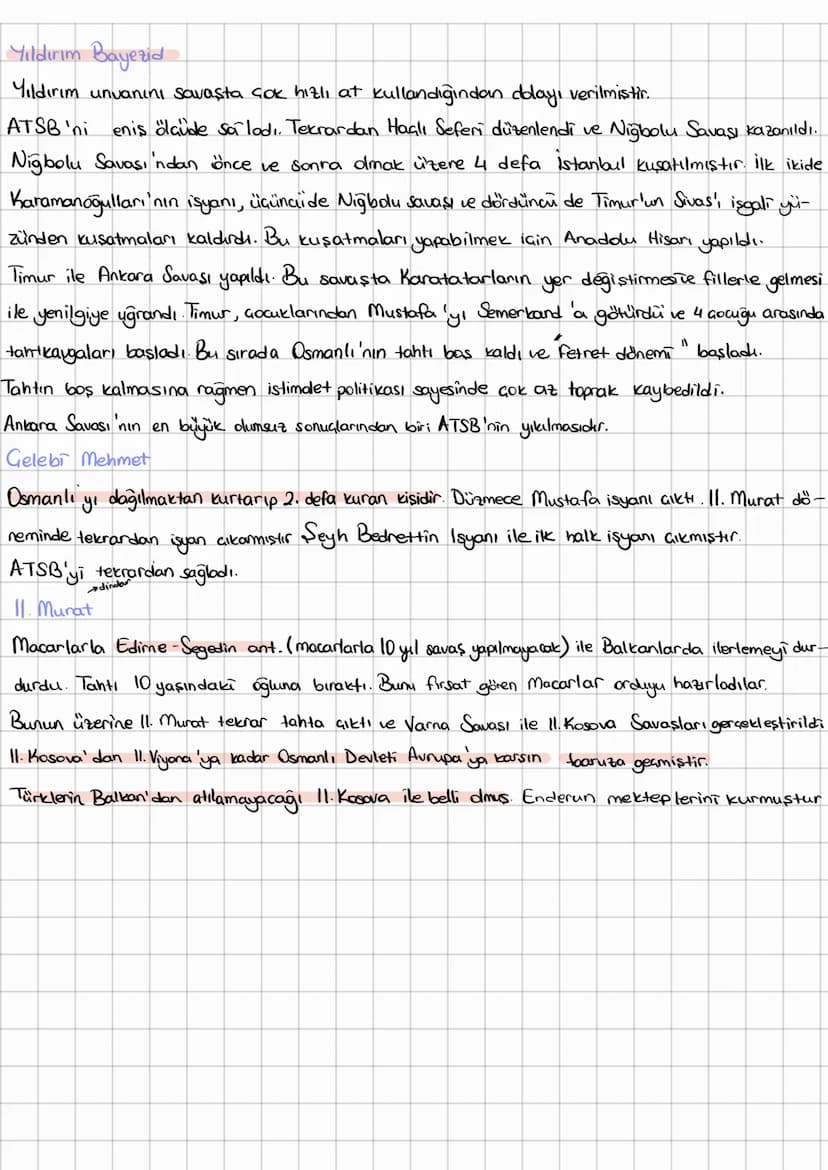 Yıldırım Bayezid
Yıldırım unvanını savaşta çok hızlı at kullandığından dolayı verilmiştir.
ATSB'ni eniş ölçüde sa ladı. Tekrardan Haçlı Seferi düzenlendi ve Niğbolu Savaşı kazanıldı.
Niğbolu Savaşı'ndan önce ve sonra olmak üzere 4 defa İstanbul kuşatılmıştır. İlk ikide
Karamanoğulları'nın isyanı, üçüncüde Niğbolu savaşı ve dördüncü de Timur'un Sivas'ı işgali yü-
zünden kuşatmaları kaldırdı. Bu kuşatmaları yapabilmek için Anadolu Hisarı yapıldı.
Timur ile Ankara Savaşı yapıldı. Bu savaşta Karatatarların yer değiştirmesi ve fillerle gelmesi
ile yenilgiye uğrandı. Timur, çocuklarından Mustafa'yı Semerkand'a götürdü ve 4 çocuğu arasında
taht kavgaları başladı. Bu sırada Osmanlı'nın tahtı boş kaldı ve "fetret dönemi" başladı.
Tahtın boş kalmasına rağmen istimdet politikası sayesinde çok az toprak kaybedildi.
Ankara Savaşı'nın en büyük olumsuz sonuçlarından biri ATSB'nin yıkılmasıdır.
Çelebi Mehmet
Osmanlı'yı dağılmaktan kurtarıp 2. defa kuran kişidir. Düzmece Mustafa isyanı çıktı. II. Murat dö-
neminde tekrardan isyan çıkarmıştır Şeyh Bedrettin İsyanı ile ilk halk isyanı çıkmıştır.
ATSB'yi tekrardan sağladı.
II. Murat
Macarlarla Edirne-Segedin ant. (macarlarla 10 yıl savaş yapılmayacak) ile Balkanlarda ilerlemeyi dur-
durdu. Tahtı 10 yaşındaki oğluna bıraktı. Bunu fırsat gören Macarlar orduyu hazırladılar.
Bunun üzerine II. Murat tekrar tahta çıktı ve Varna Savaşı ile II. Kosova Savaşları gerçekleştirildi
II. Kosova'dan II. Viyana'ya kadar Osmanlı Devleti Avrupa'ya karşın taaruza geçmiştir.
Türklerin Balkan'dan atılamayacağı II. Kosova ile belli olmuş. Enderun mekteplerini kurmuştur